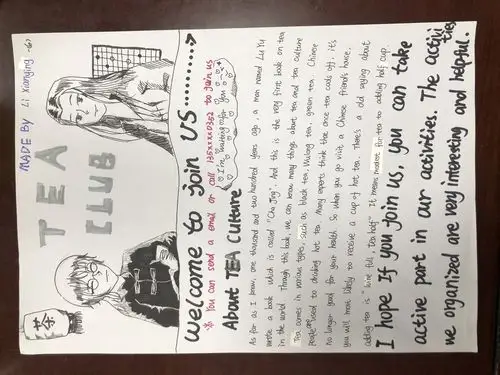 MADE By Li Xiangjing -(6)
TEA
CLUB
茶
Welcome to join us..........
※ You can send a email or call 135xxxx0302 to join us
I'm waiting for you
About TEA Culture
As far as I know, one thousand and two hundred years ago, a man named Lu Yu
wrote a book which is called "Cha Jing". And this is the very first book on tea
in the world. Through this book, we can know many things about tea and tea culture
Tea comes in various types, such as black tea, Wulong tea, green tea. Chinese
people are used to drinking hot tea. Many experts think that once tea cools off, it's
No longer good for your health. So when you go visit a Chinese friend's house,
you will most likely to receive a cup of hot tea. There's a old saying about
adding tea is " full, Tea half". It means for tea to adding half cup.
I hope If you join us, you can take
active part in our activities. The activities
we organized are very interesting and helpful.